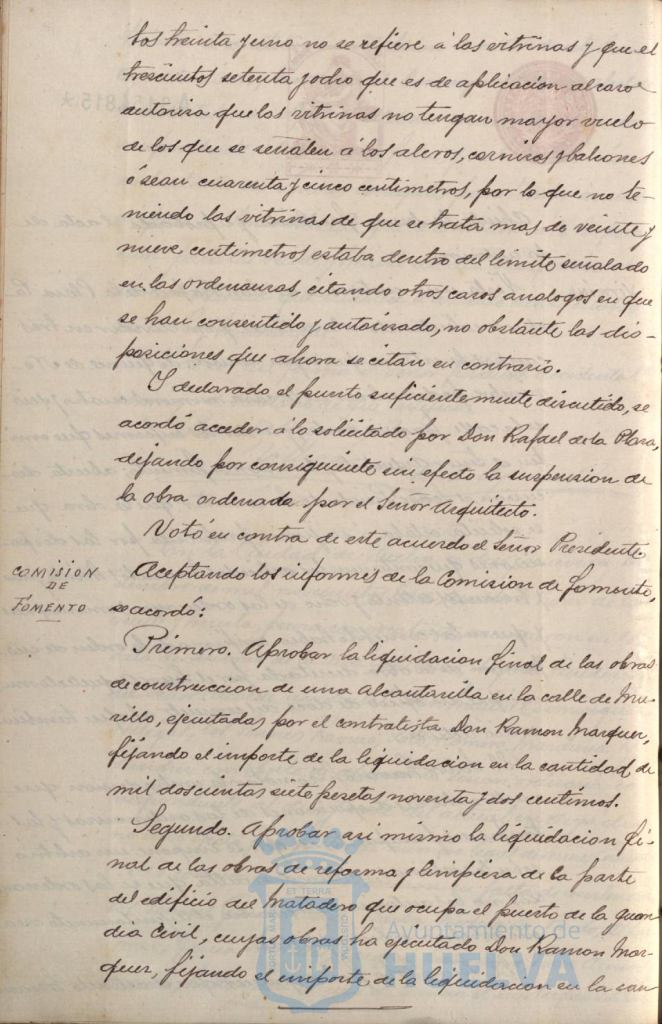 tos treinta y uno no se refiere á las vitrinas y que el
trescientos setenta y ocho que es de aplicacion al caso
autoriza que las vitrinas no tengan mayor vuelo
de los que se señalen á los aleros, cornisas y balcones
ó sean cuarenta y cinco centimetros, por lo que no te-
niendo las vitrinas de que se trata mas de veinte y
nueve centimetros estaba dentro del limite señalado
en las ordenanzas, citando otros casos analogos en que
se han consentido y autorizado, no obstante las dis-
posiciones que ahora se citan en contrario.
Y declarado el punto suficientemente discutido, se
acordó acceder á lo solicitado por Don Rafael de la Plaza,
dejando por consiguiente sin efecto la suspension de
la obra ordenada por el Señor Arquitecto.
Votó en contra de este acuerdo el Señor Presidente.
COMISION
DE
FOMENTO
Aceptando los informes de la Comision de fomento,
se acordó:
Primero. Aprobar la liquidacion final de las obras
de construccion de una alcantarilla en la calle de Mu-
rillo, ejecutadas por el contratista Don Ramon Marquez,
fijando el importe de la liquidacion en la cantidad de
mil doscientas siete pesetas noventa y dos centimos.
Segundo. Aprobar asi mismo la liquidacion fi-
nal de las obras de reforma y limpieza de la parte
del edificio del Matadero que ocupa el puesto de la guar
dia Civil, cuyas obras ha ejecutado Don Ramon Mar-
quez, fijando el importe de la liquidacion en la can
815*
Ayuntamiento de
HUELVA